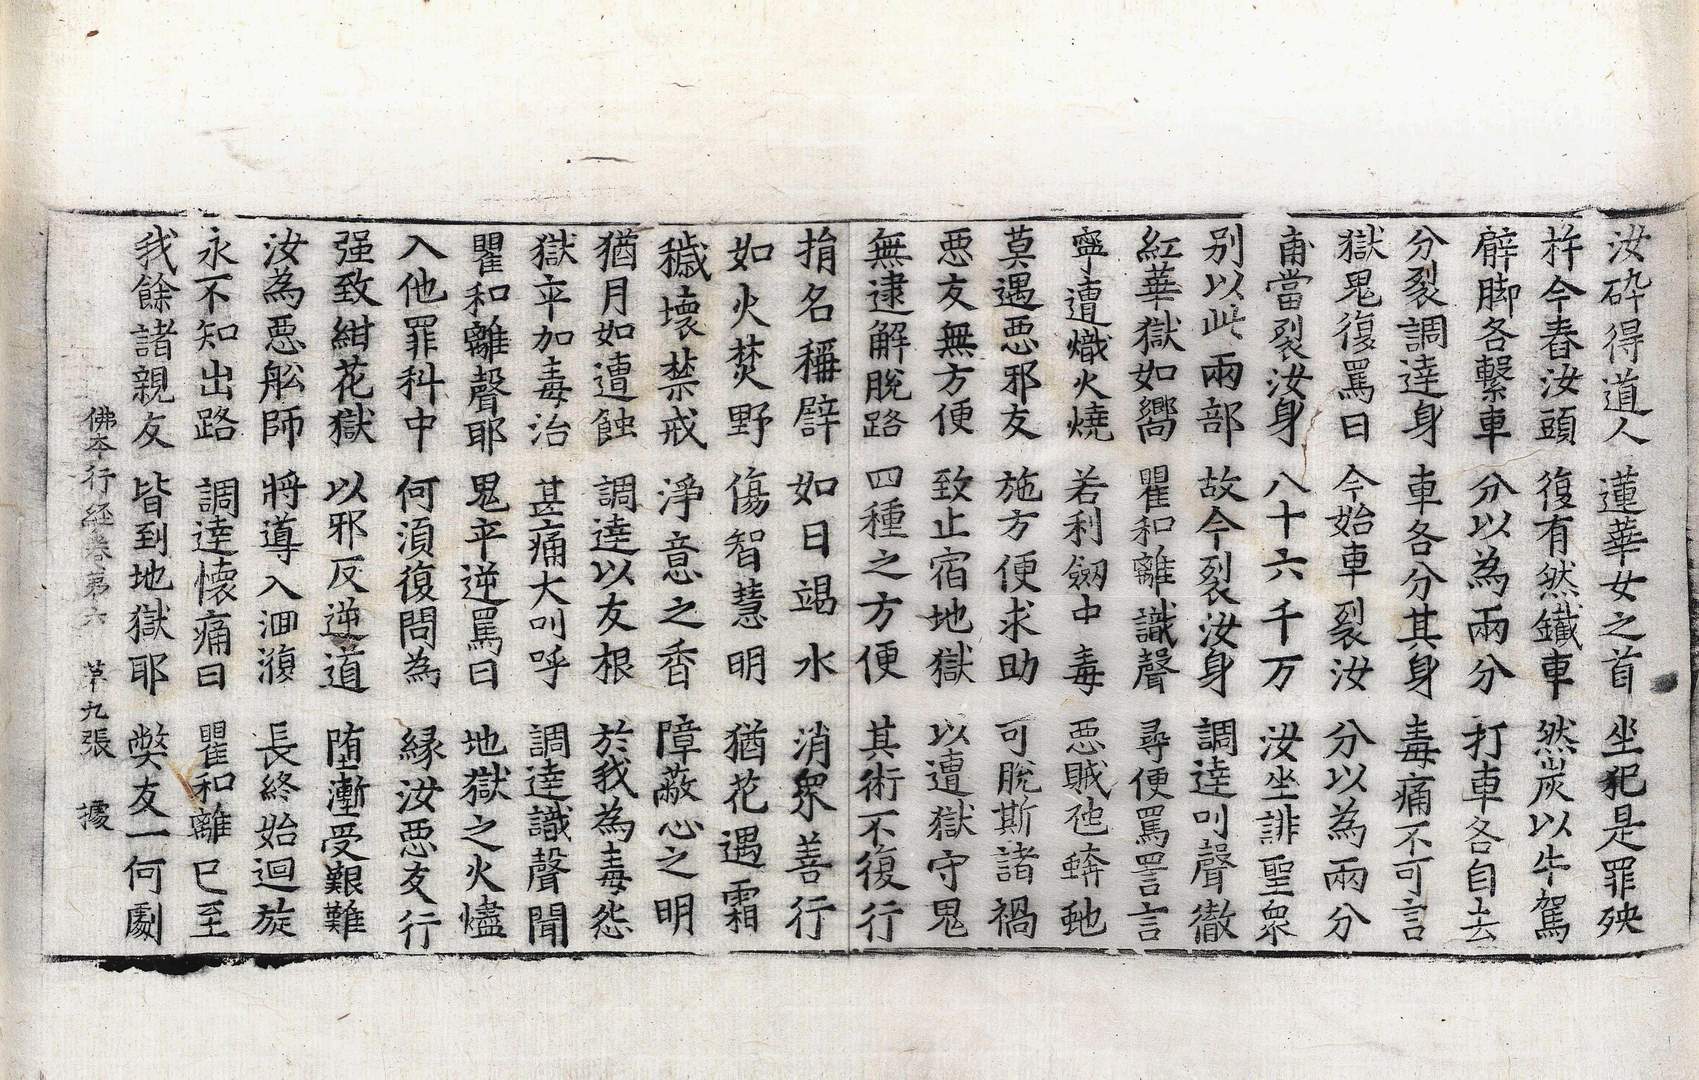 汝碎得道人 蓮華女之首 坐犯是罪殃
杵今舂汝頭 復有然鐵車 然炭以牛駕
擗脚各繫車 分以為兩分 打車各自去
分裂調達身 車各分其身 毒痛不可言
獄鬼復罵曰 今始車裂汝 分以為兩分
甫當裂汝身 八十六千万 汝坐誹聖眾
別以此兩部 故今裂汝身 調達叫聲徹
紅華獄如嚮 瞿和離識聲 尋便罵詈言
寧遭熾火燒 若利劒中毒 惡賊虵蜯
莫遇惡邪友 施方便求助 可脫斯諸禍
惡友無方便 致止宿地獄 以遭獄守鬼
無逮解脫路 四種之方便 其術不復行
捐名稱譬 如日竭水 消眾善行
如火焚野 傷智慧明 猶花遇霜
穢壞禁戒 淨意之香 障蔽心之明
猶月如遭蝕 調達以友根 於我為毒怨
獄卒加毒治 甚痛大叫呼 調達識聲聞
瞿和離聲耶 鬼卒逆罵曰 地獄之火燼
入他罪科中 何須復問為 緣汝惡友行
强致紺花獄 以邪反逆道 墮漸受艱難
汝為惡舩師 將導入洄澓 長終始迴旋
永不知出路 調達懷痛曰 瞿和離已至
我餘諸親友 皆到地獄耶 弊友一何劇
佛本行經卷第六 第九張 據